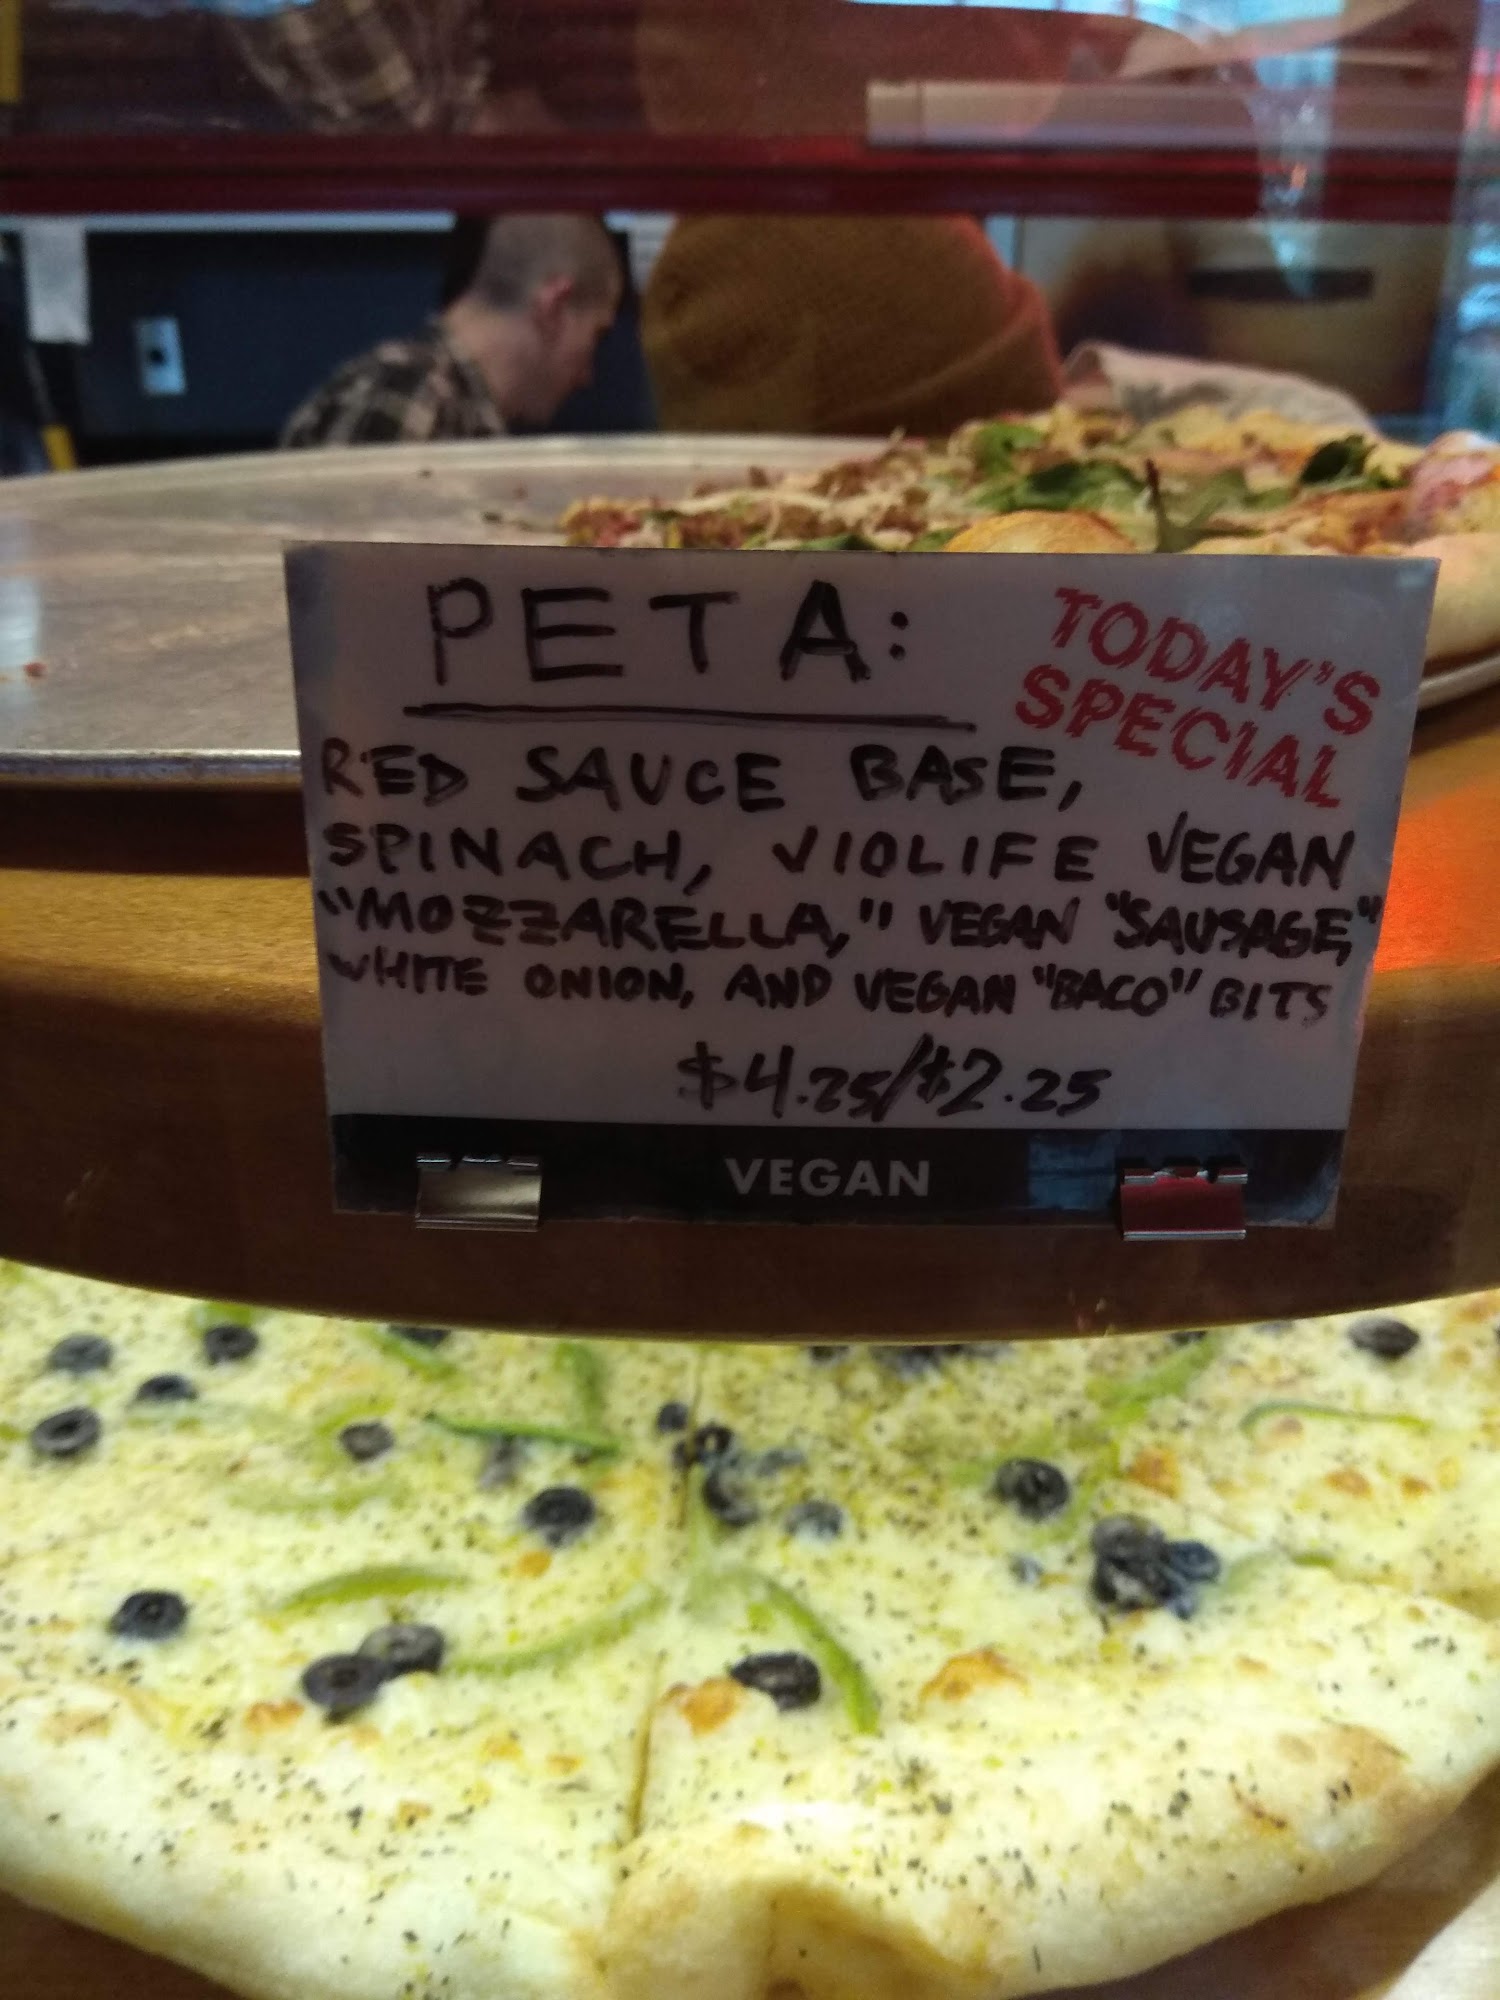 PETA:
TODAY'S
SPECIAL
RED SAUCE BASE,
SPINACH, VIOLIFE VEGAN
"MOZZARELLA," VEGAN "SAUSAGE,"
WHITE ONION, AND VEGAN "BACO" BITS
$4.25/$2.25
VEGAN